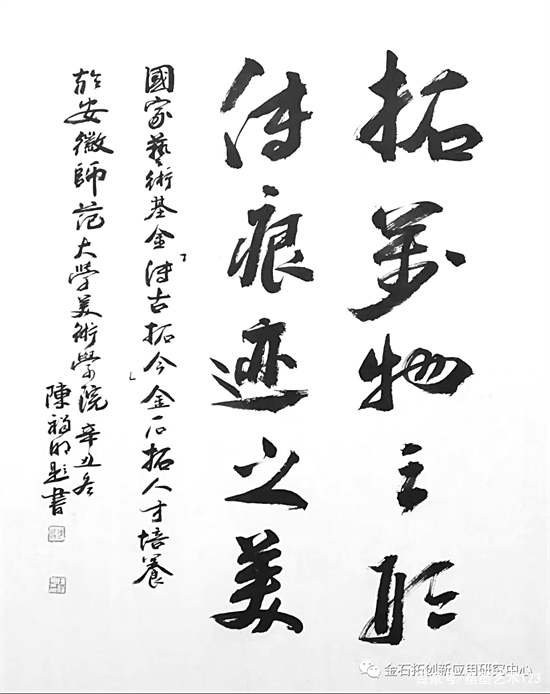 拓萬物之形
傳痕迹之美
國家藝術基金「傳古拓今」金石拓人才培養
於安徽師范大學美術學院辛丑冬
陳明題書
金石拓创新应用研究中心
艺术123